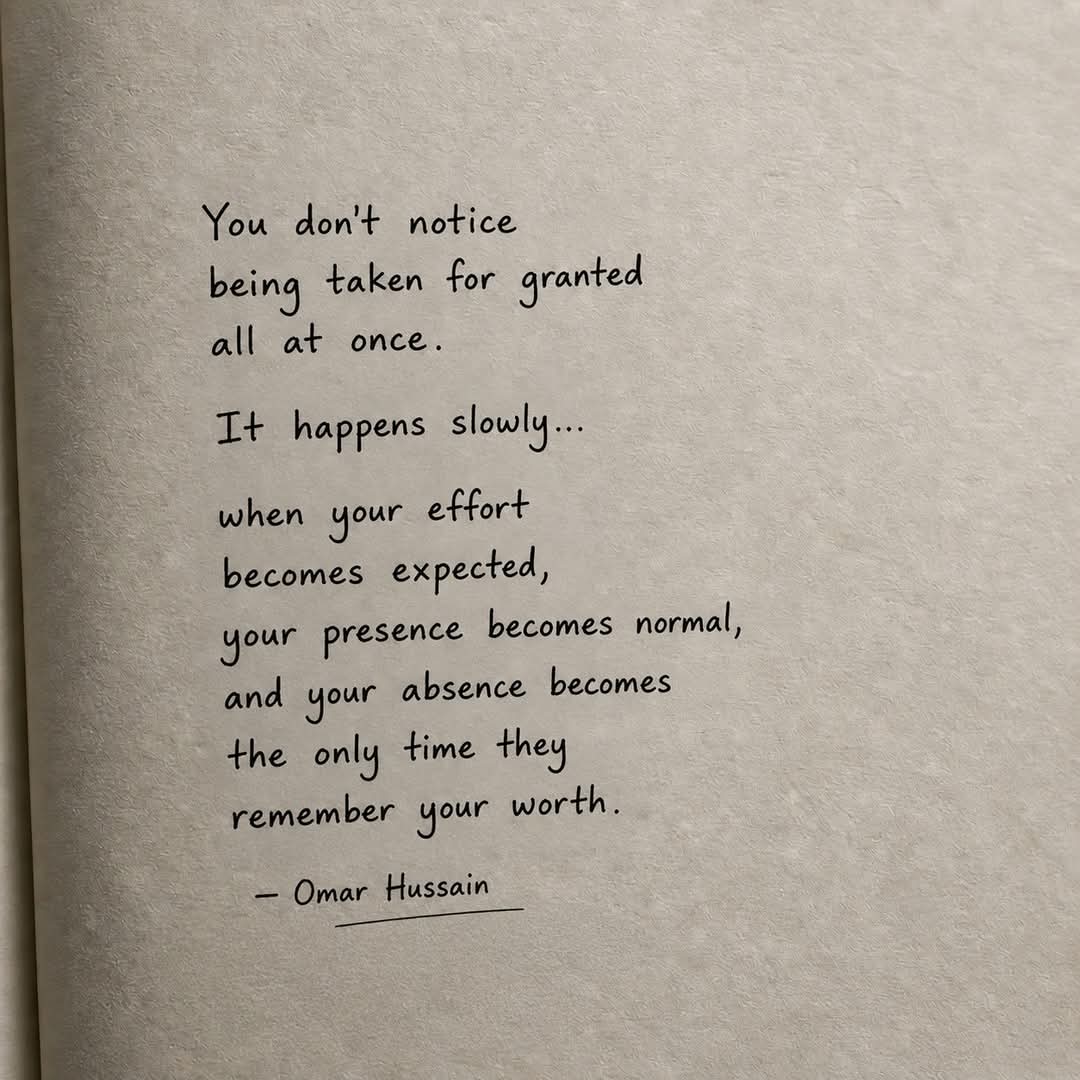 You don't notice
being taken for granted
all at once.
It happens slowly...
when your effort
becomes expected,
your presence becomes normal,
and your absence becomes
the only time they
remember your worth.
— Omar Hussain